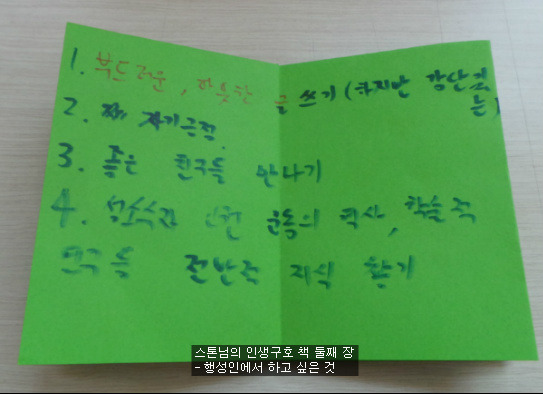 1. 부드러운, 따뜻한 글 쓰기 (하지만 강단있
는)
2. 자기긍정.
3. 좋은 친구들 만나기
4. 성소수자 인권 운동의 역사, 학술적
연구 등 전반적 지식 쌓기
스톤님의 인생구호 책 둘째 장
- 행성인에서 하고 싶은 것